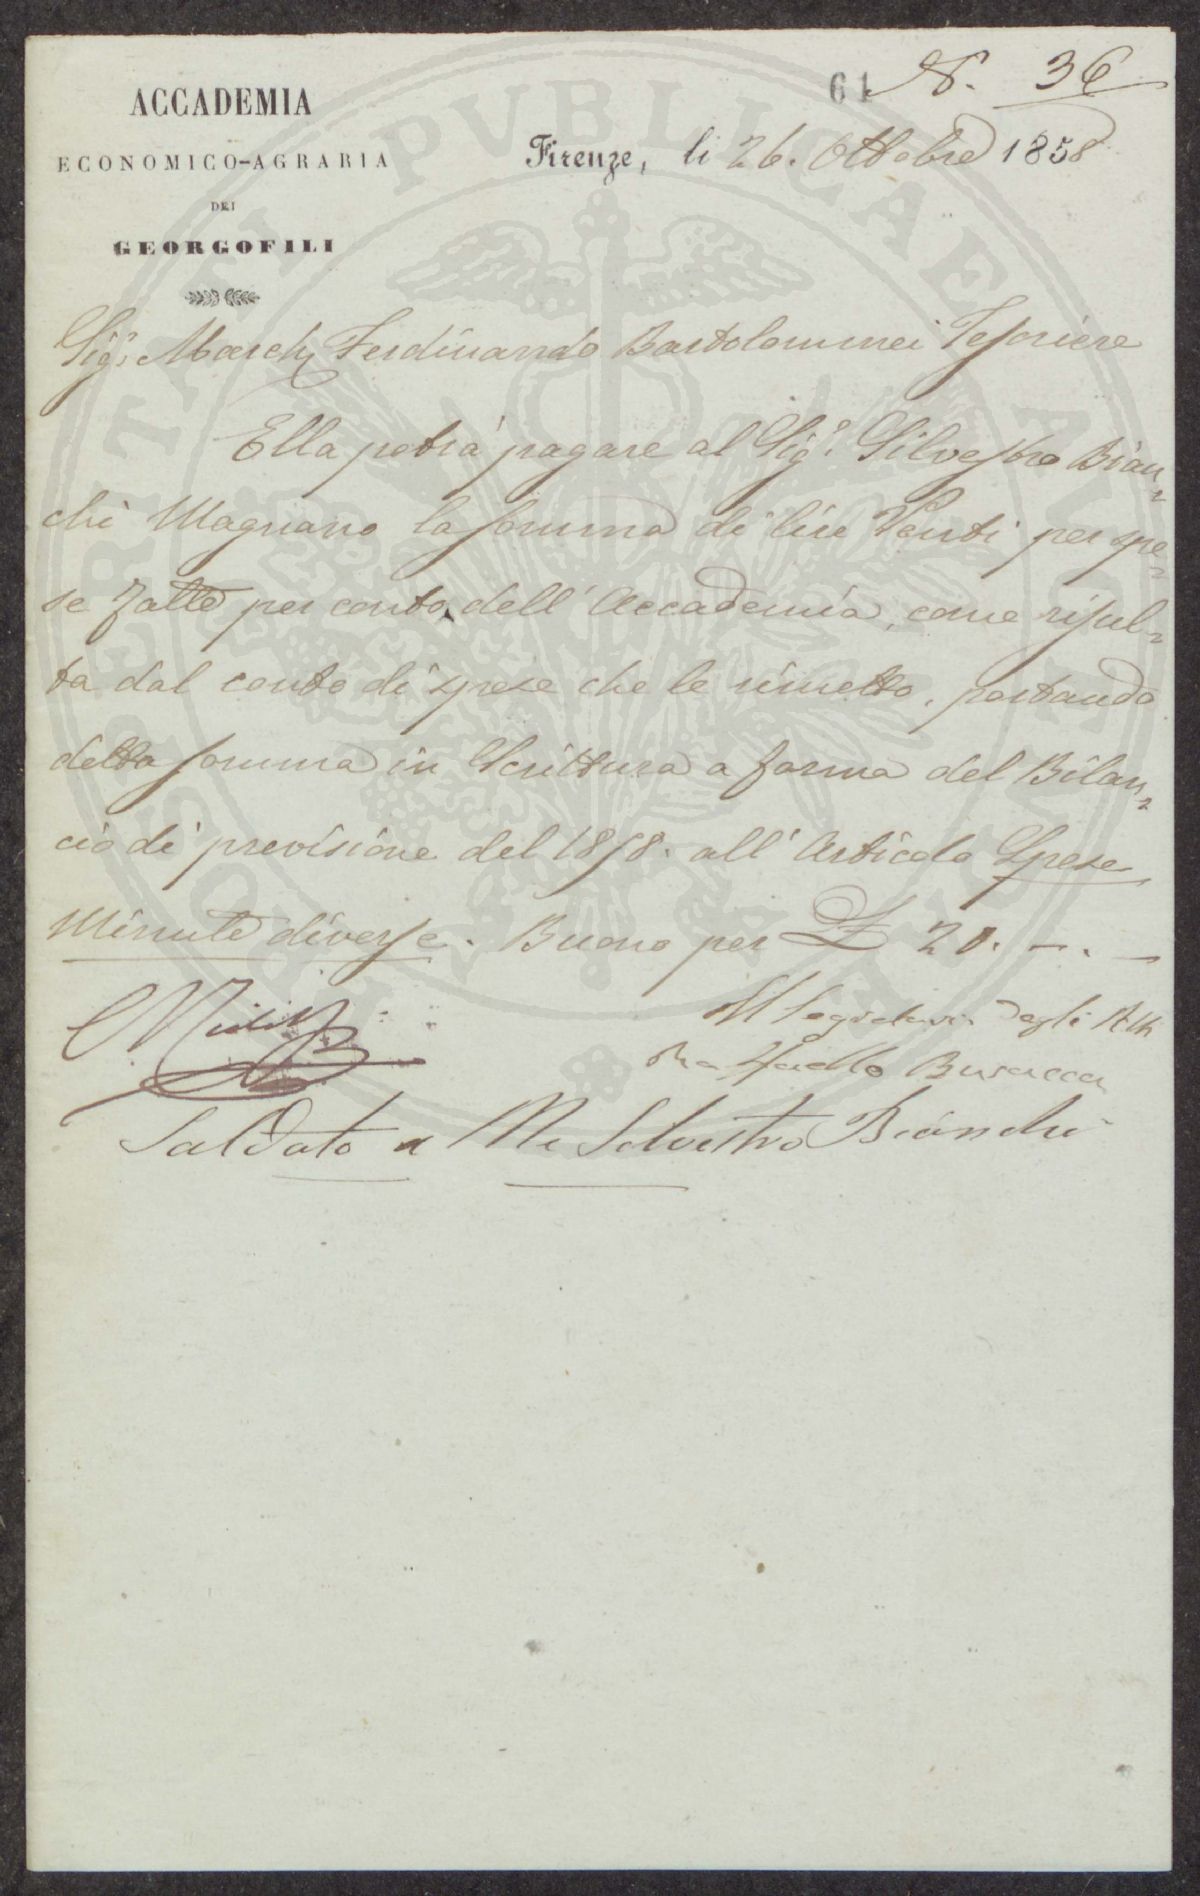 61 N. 36
ACCADEMIA
ECONOMICO-AGRARIA
DEI
GEORGOFILI
Firenze, li 26. Ottobre 1858
Sig.r March Ferdinando Bartolommei Tesoriere
Ella potrà pagare al Sig.r Silvestro Bian=
chi Magnano la somma di lire Venti per spe=
se fatte per conto dell'Accademia, come risul=
ta dal conto di spese che le rimetto, portando
detta somma in Scrittura a forma del Bilan=
cio di previsione del 1858. all'Articolo Spese
Minute diverse. Buono per £ 20. -. -
Il Segretario degli Atti
Raffaello Busacca
Saldato a Me Silvestro Bianchi
PVBLICAE